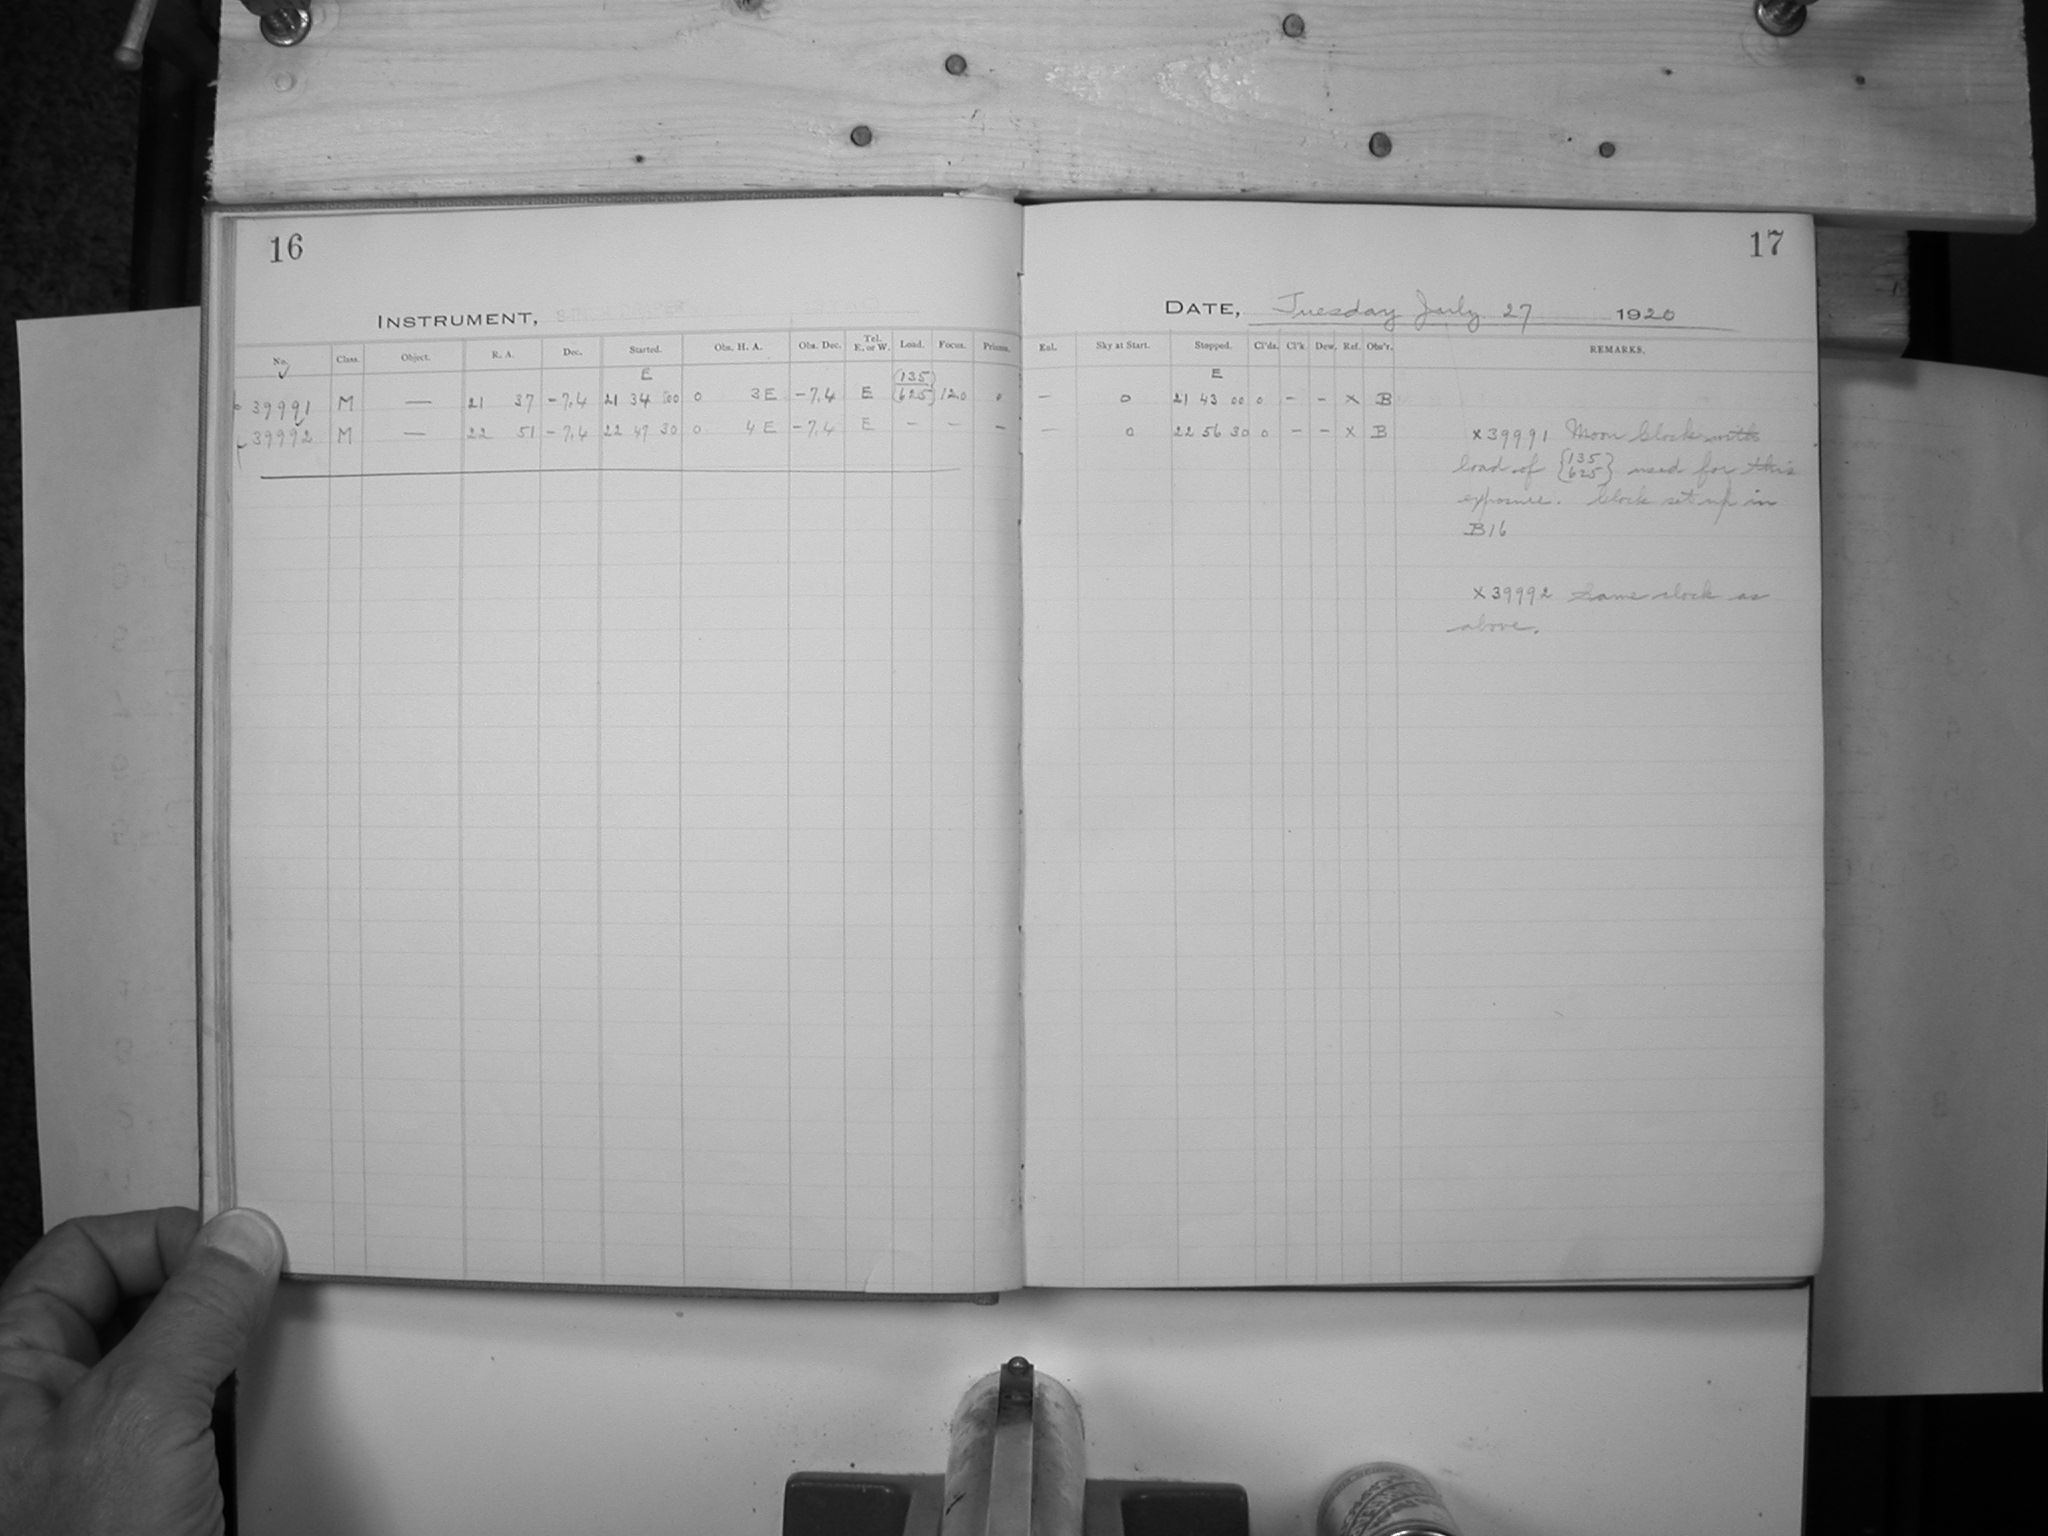 16
INSTRUMENT,
No. Class. Object. R. A. Dec. Started. Obs. H. A. Obs. Dec. Tel. E. or W. Load. Focus. Prisms.
E
39991 M — 21 37 -7.4 21 34 00 0 3E -7.4 E {135 625} 12.0 0
39992 M — 22 51 -7.4 22 47 30 0 4E -7.4 E - - -
17
DATE, Tuesday July 27 1920
Enl. Sky at Start. Stopped. Cl'ds. Cl'k Dew. Ref. Obs'r. REMARKS.
E
- 0 21 43 00 0 - - X B
- 0 22 56 30 0 - - X B
X39991 Moon clock with
load of {135 625} used for this
exposure. Clock set up in
B16
X39992 Same clock as
above.